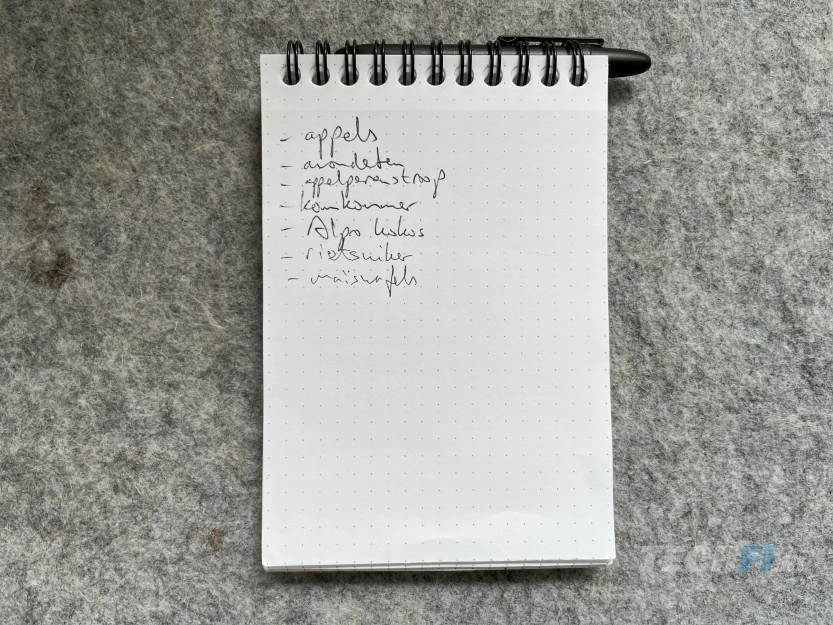 - appels
- avondeten
- appelperenstroop
- komkommer
- Alpro kokos
- rietsuiker
- maïswafels